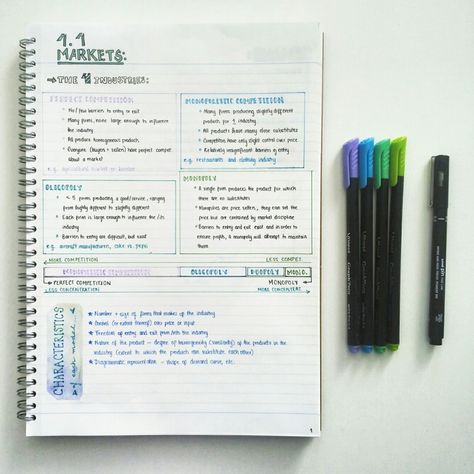 1.1
MARKETS:
→ THE 4 INDUSTRIES:
PERFECT COMPETITION
• No/few barriers to entry or exit
• Many firms, none large enough to influence
the industry
• All produce homogeneous products
• Everyone (buyers + sellers) have perfect info
about a market
e.g. agricultural market
MONOPOLISTIC COMPETITION
• Many firms producing slightly different
products for 1 industry
• All products have many close substitutes
• Competitors have only slight control over price
• Relatively insignificant barriers of entry
e.g. restaurants and clothing industry
OLIGOPOLY
• < 5 firms producing a good/service, ranging
from highly different to slightly different
• Each firm is large enough to influence the
industry
• Barriers to entry are difficult, but exist
e.g. aircraft manufacturers, coke vs. pepsi
MONOPOLY
• A single firm produces the product for which
there are no substitutes
• Monopolies are price setters, they can set the
price but are contained by market discipline
• Barriers to entry and exit exist and in order to
ensure profits, a monopoly will attempt to maintain
them
MORE COMPETITION
LESS COMPET.
MONOPOLISTIC COMPETITION
OLIGOPOLY
DUOPOLY
MONO.
PERFECT COMPETITION
MONOPOLY
LESS CONCENTRATION
MORE CONCENTRAT.
CHARACTERISTICS
of each model
★ Number + size of firms that makes up the industry
★ Control (or extent thereof) over price or input
★ Freedom of entry and exit from/into the industry
★ Nature of the product - degree of homogeneity (similarity) of the products in the
industry (extent to which the products can substitute each other)
★ Diagrammatic representation - shape of demand curve, etc.
1